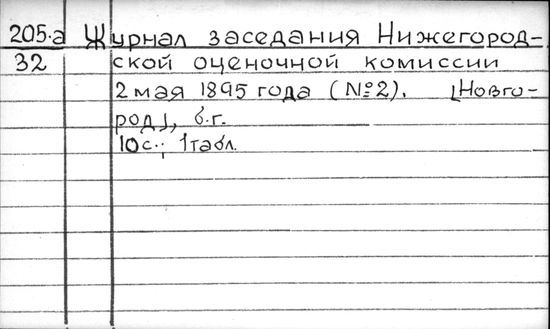 205.а Журнал заседания Нижегород-
32 ской оценочной комиссии
2 мая 1895 года (№2). [Новго-
род], б.г.
10с.; 1табл.